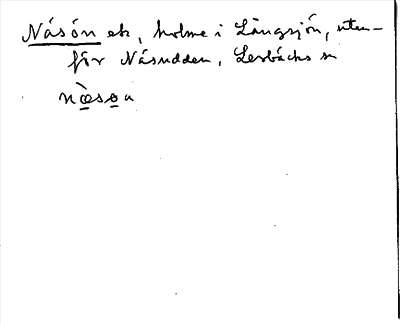 Näsön ek, holme i Långsjön, uten-
för Näsudden, Lerbäcks sn
nǜsọn